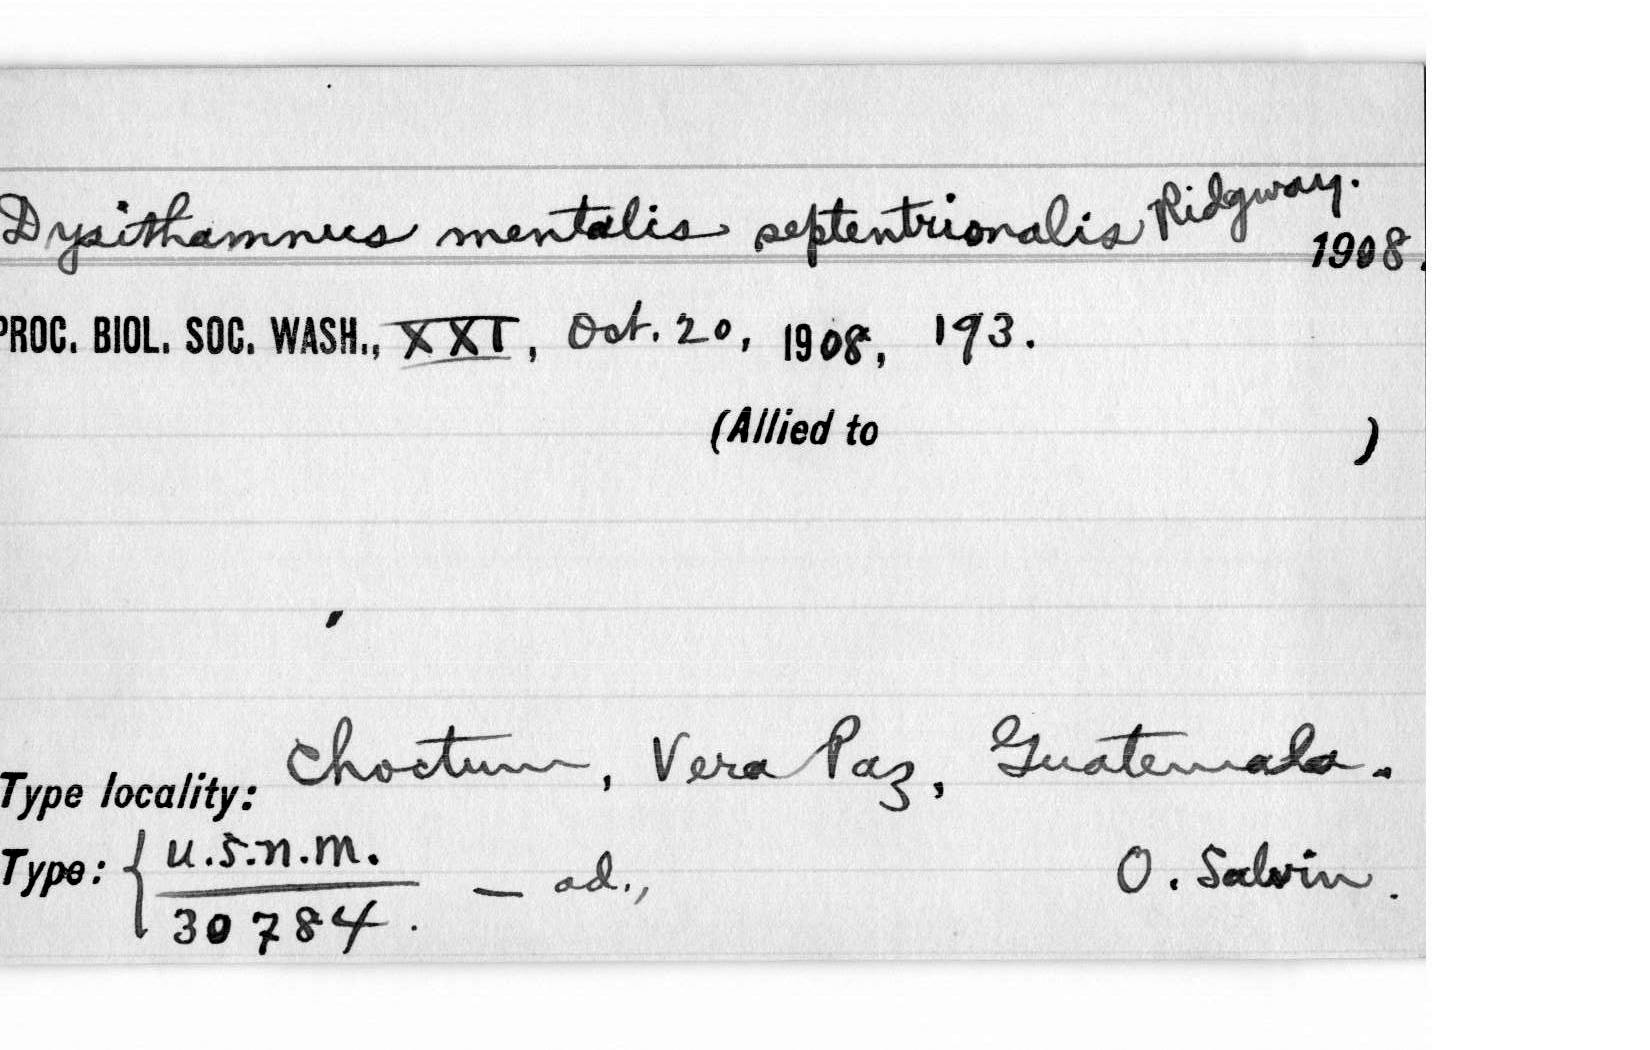 Dysithamnus mentalis septentrionalis Ridgway.
1908.
PROC. BIOL. SOC. WASH., XXI, Oct. 20, 1908, 193.
(Allied to )
Type locality: Choctum, Vera Paz, Guatemala.
Type: { U.S.N.M.
30784. — ad., O. Salvin.